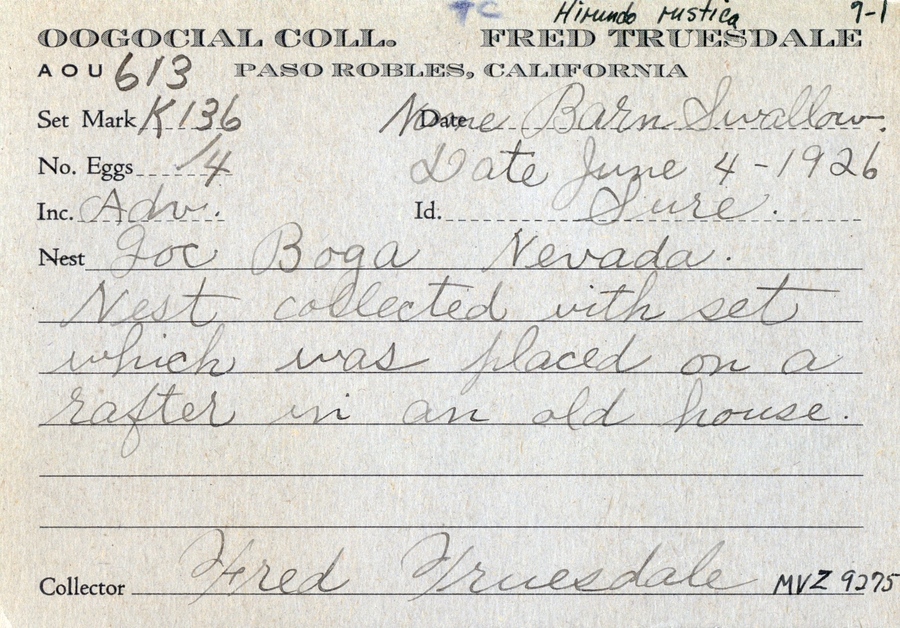 TC Hirundo rustica 9-1
OOGOCIAL COLL. FRED TRUESDALE
AOU 613 PASO ROBLES, CALIFORNIA
Set Mark K136 Date Name Barn Swallow.
No. Eggs 4 Date June 4-1926
Inc. Adv. Id. Sure.
Nest Loc Boga Nevada.
Nest collected with set
which was placed on a
rafter in an old house.
Collector Fred Truesdale MVZ 9275